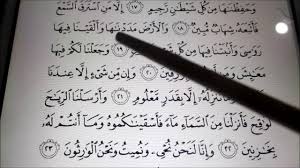 وَحَفِظْنَٰهَا مِن كُلِّ شَيْطَٰنٍ رَّجِيمٍ ١٧ إِلَّا مَنِ ٱسْتَرَقَ ٱلسَّمْعَ
فَأَتْبَعَهُۥ شِهَابٌ مُّبِينٌ ١٨ وَٱلْأَرْضَ مَدَدْنَٰهَا وَأَلْقَيْنَا فِيهَا
رَوَٰسِيَ وَأَنۢبَتْنَا فِيهَا مِن كُلِّ ١٩ وَجَعَلْنَا لَكُمْ فِيهَا
مَعَٰيِشَ وَمَن لَّسْتُمْ لَهُۥ بِرَٰزِقِينَ ٢٠ وَإِن مِّن شَىْءٍ إِلَّا عِندَنَا
خَزَآئِنُهُۥ وَمَا نُنَزِّلُهُۥٓ إِلَّا بِقَدَرٍ مَّعْلُومٍ ٢١ وَأَرْسَلْنَا ٱلرِّيَٰحَ
لَوَٰقِحَ فَأَنزَلْنَا مِنَ ٱلسَّمَآءِ مَآءً فَأَسْقَيْنَٰكُمُوهُ وَمَآ أَنتُمْ لَهُۥ
بِخَٰزِنِينَ ٢٢ وَإِنَّا لَنَحْنُ نُحْىِۦ وَنُمِيتُ وَنَحْنُ ٱلْوَٰرِثُونَ ٢٣